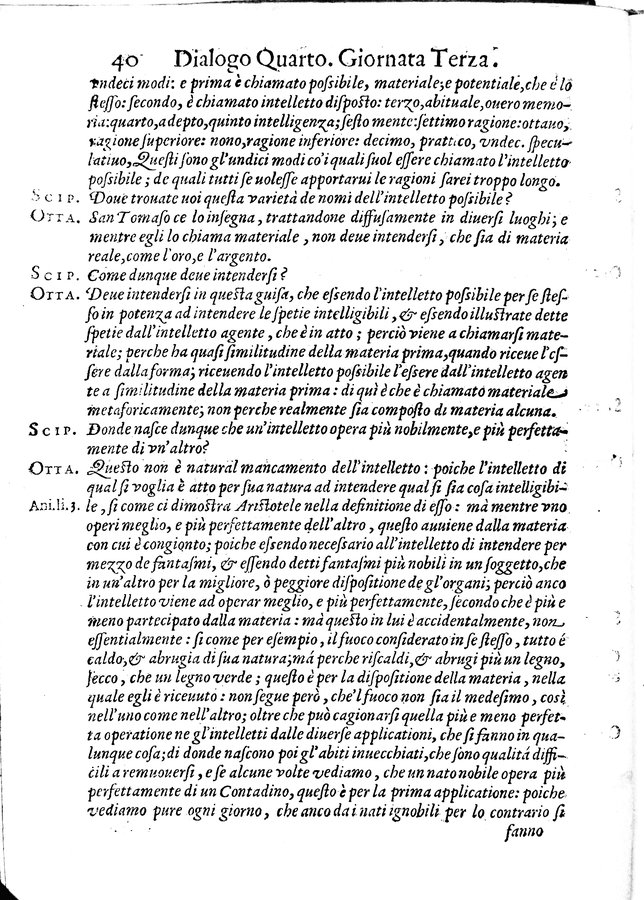 40 Dialogo Quarto. Giornata Terza.
vndeci modi: e prima è chiamato possibile, materiale; e potentiale, che è lo
stesso: secondo, è chiamato intelletto disposto: terzo, abituale, ouero memo-
ria: quarto, adepto, quinto intelligenza; sesto mente: settimo ragione: ottauo,
ragione superiore: nono, ragione inferiore: decimo, prattico, vndec. specu-
latiuo, Questi sono gl'undici modi co'i quali suol essere chiamato l'intelletto
possibile; de quali tutti se uolesse apportarui le ragioni sarei troppo longo.
SCIP. Doue trouate uoi questa varietà de nomi dell'intelletto possibile?
OTTA. San Tomaso ce lo insegna, trattandone diffusamente in diuersi luoghi; e
mentre egli lo chiama materiale, non deue intendersi, che sia di materia
reale, come l'oro, e l'argento.
SCIP. Come dunque deue intendersi?
OTTA. Deue intendersi in questa guisa, che essendo l'intelletto possibile per se stes-
so in potenza ad intendere le spetie intelligibili, & essendo illustrate dette
spetie dall'intelletto agente, che è in atto; perciò viene a chiamarsi mate-
riale; perche ha quasi similitudine della materia prima, quando riceue l'es-
sere dalla forma; riceuendo l'intelletto possibile l'essere dall'intelletto agen
te a similitudine della materia prima: di quì è che è chiamato materiale
metaforicamente; non perche realmente sia composto di materia alcuna.
SCIP. Donde nasce dunque che un'intelletto opera più nobilmente, e più perfetta-
mente di vn'altro?
OTTA. Questo non è natural mancamento dell'intelletto: poiche l'intelletto di
qual si voglia è atto per sua natura ad intendere qual si sia cosa intelligibi-
Ani. li. 3. le, si come ci dimostra Aristotele nella definitione di esso: mà mentre vno
operi meglio, e più perfettamente dell'altro, questo auuiene dalla materia
con cui è congionto; poiche essendo necessario all'intelletto di intendere per
mezzo de fantasmi, & essendo detti fantasmi più nobili in un soggetto, che
in un'altro per la migliore, ò peggiore dispositione de gl'organi; perciò anco
l'intelletto viene ad operar meglio, e più perfettamente, secondo che è più e
meno partecipato dalla materia: mà questo in lui è accidentalmente, non
essentialmente: si come per esempio, il fuoco considerato in se stesso, tutto é
caldo, & abrugia di sua natura; má perche riscaldi, & abrugi più un legno,
secco, che un legno verde; questo è per la dispositione della materia, nella
quale egli è riceuuto: non segue però, che'l fuoco non sia il medesimo, così
nell'uno come nell'altro; oltre che può cagionarsi quella più e meno perfet-
ta operatione ne gl'intelletti dalle diuerse applicationi, che si fanno in qua-
lunque cosa; di donde nascono poi gl'abiti inuecchiati, che sono qualitá diffi-
cili a remuouersi, e se alcune volte vediamo, che un nato nobile opera più
perfettamente di un Contadino, questo è per la prima applicatione: poiche
vediamo pure ogni giorno, che anco da i nati ignobili per lo contrario si
fanno